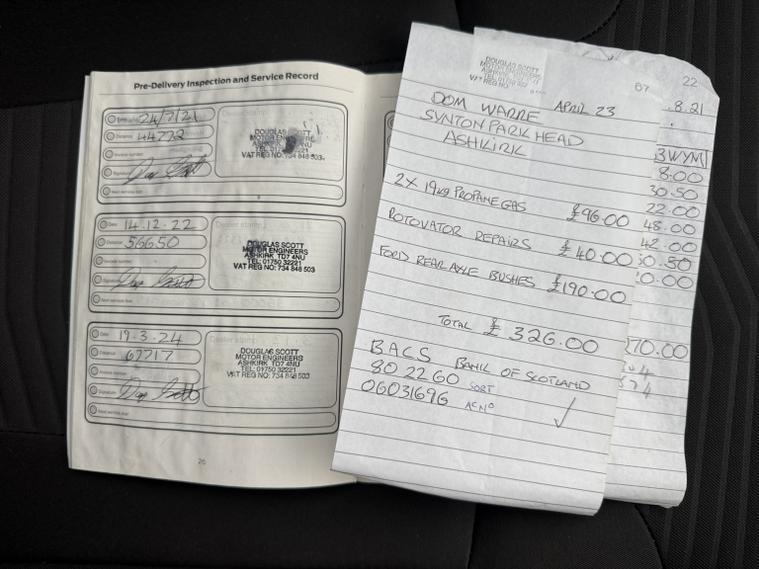 Pre-Delivery Inspection and Service Record
Date 24/7/21
Distance 44772
Invoice number
Signature
Next service due
Dealer stamp
DOUGLAS SCOTT
MOTOR ENGINEERS
ASHKIRK TD7 4NU
TEL: 01750 32221
VAT REG NO: 734 848 503
Date 14.12.22
Distance 56650
Invoice number
Signature
Next service due
Dealer stamp
DOUGLAS SCOTT
MOTOR ENGINEERS
ASHKIRK TD7 4NU
TEL: 01750 32221
VAT REG NO: 734 848 503
Date 19.3.24
Distance 67717
Invoice number
Signature
Next service due
Dealer stamp
DOUGLAS SCOTT
MOTOR ENGINEERS
ASHKIRK TD7 4NU
TEL: 01750 32221
VAT REG NO: 734 848 503
26
DOUGLAS SCOTT
MOTOR ENGINEERS
VAT REG NO:
67
DOM WARRE APRIL 23
SYNTON PARK HEAD
ASHKIRK
2X 19KG PROPANE GAS £96.00
ROTOVATOR REPAIRS £40.00
FORD REAR AXLE BUSHES £190.00
TOTAL £326.00
BACS BANK OF SCOTLAND
80 22 60 SORT
06031696 AC NO
22
.8.21
3WYM
8.00
30.50
22.00
48.00
42.00
30.50
0.00
70.00